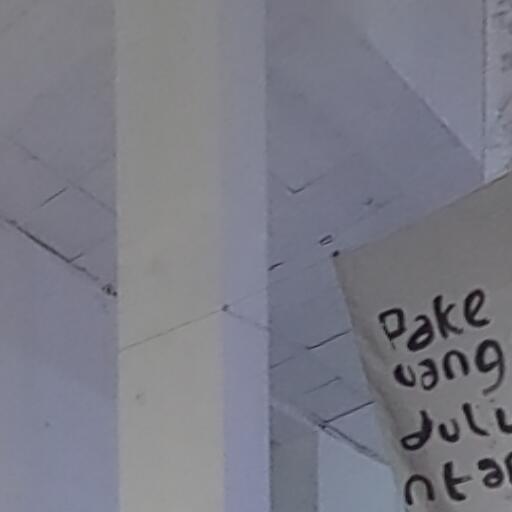 Pake
uang
dulu
ntar